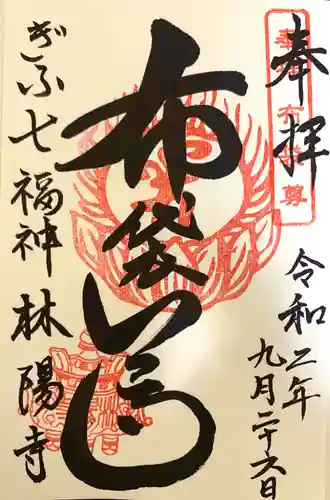 奉拝
令和二年
九月二十六日
布袋尊
ぎふ七福神 林陽寺